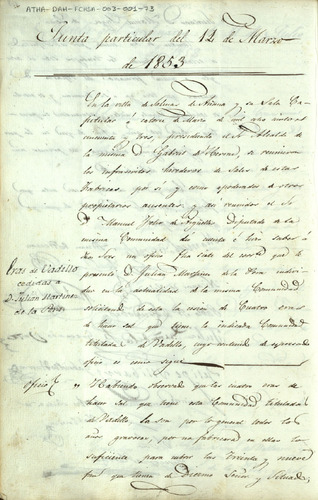 ATHA-DAH-FCHSA-003-001-73
Junta particular del 14 de Marzo
de 1853
En la villa de Salinas de Añana y su Sala Ca-
pitular á catorce de Marzo de mil ochocientos
cincuenta y tres, presidiendo el Sr. Alcalde de
la misma D. Gabriel de Herran, se reunieron
los infrascritos herederos de Sales de estas
Fabricas, por sí y como apoderados de otros
propietarios ausentes, y asi reunidos el Sr
D. Manuel Diputado de la
misma Comunidad dio cuenta é hizo saber á
dhos Sores un oficio fha siete del corrte que le
presentó D. Julian Martinez de la Pera indivi-
duo en la actualidad de la misma Comunidad
solicitando de esta la cesion de Cuatro eras
de hacer sal que tiene la indicada Comunidad
titulada de Vadillo, cuyo contenido de expresado
oficio es como sigue
Eras de Vadillo
cedidas á
D. Julian Martinez
de la Pera
Oficio
Habiendo observado que las cuatro eras de
hacer sal que tiene esta Comunidad tituladas
de Vadillo la son por lo general todos los
años gravosas, por no fabricarse en ellas lo
suficiente para cubrir los treinta y nueve
que tienen de Diezmo Señor y Situado,